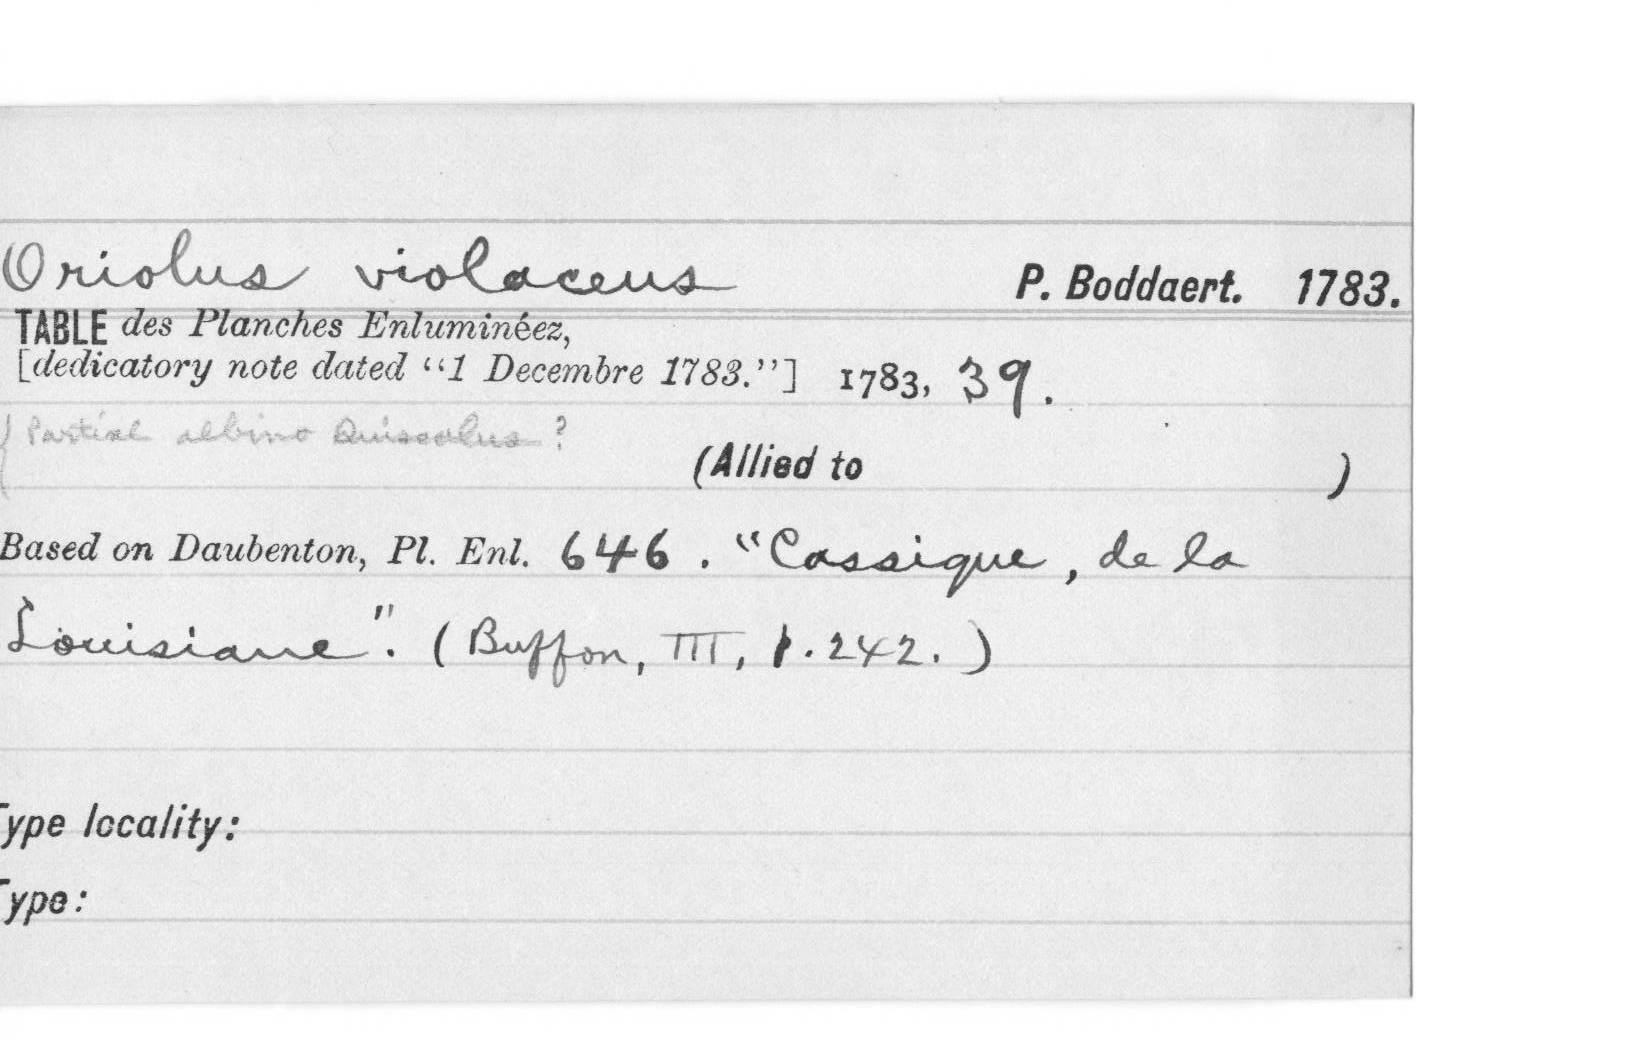 Oriolus violaceus P. Boddaert. 1783.
TABLE des Planches Enluminéez,
[dedicatory note dated “1 Decembre 1783.”] 1783, 39.
(Partial albino Quiscalus?
(Allied to )
Based on Daubenton, Pl. Enl. 646. “Cassique, de la
Louisiane”. (Buffon, III, p. 242.)
Type locality:
Type: